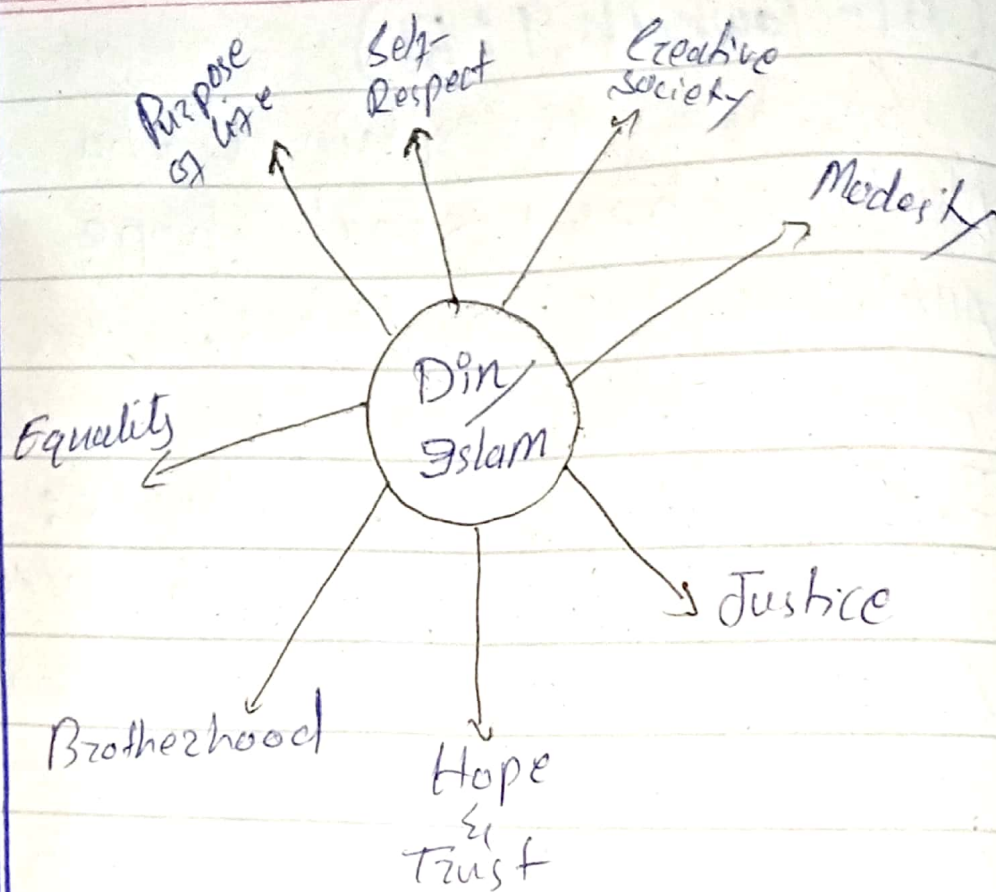 Purpose
of life
Self-
Respect
Creative
society
Modesity
Din/
Islam
Equality
Justice
Brotherhood
Hope
&
Trust